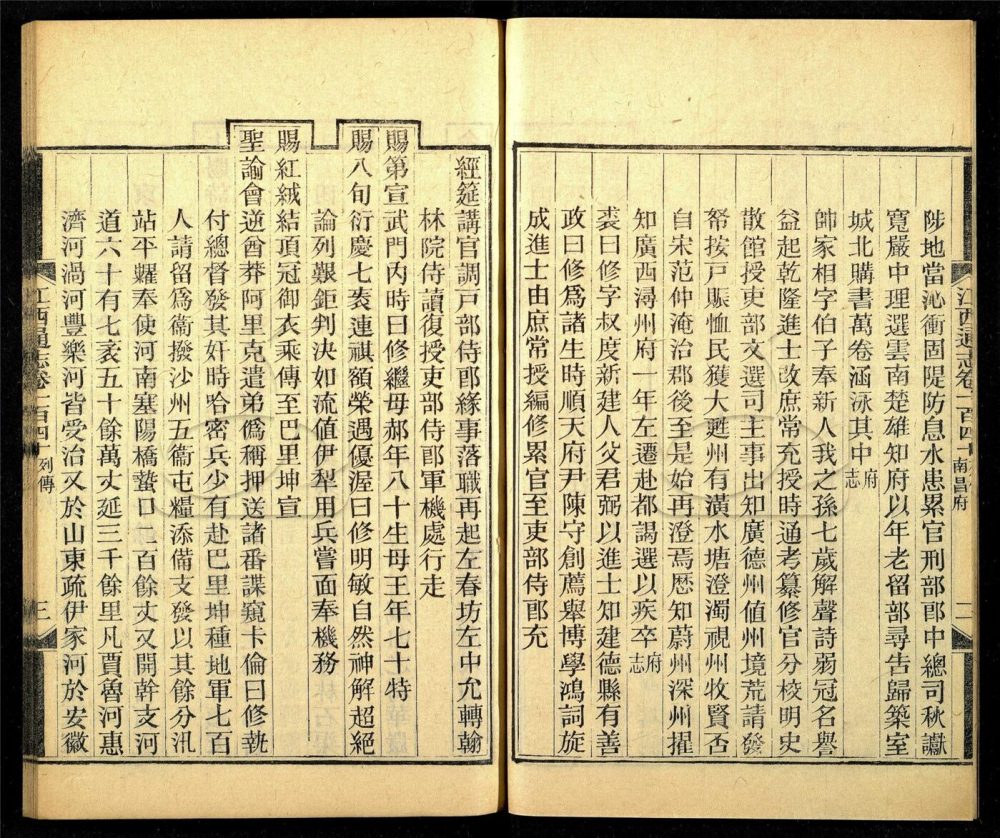 江西通志卷一百四十 南昌府 二
陟地當沁衝固隄防息水患累官刑部郎中總司秋讞
寬嚴中理選雲南楚雄知府以年老留部尋告歸築室
城北購書萬卷涵泳其中府志
帥家相字伯子奉新人我之孫七歲解聲詩弱冠名譽
益起乾隆進士改庶常充授時通考纂修官分校明史
散館授吏部文選司主事出知廣德州值州境荒請發
帑按戶賑恤民獲大甦州有潢水塘澄濁視州牧賢否
自宋范仲淹治郡後至是始再澄焉歷知蔚州深州擢
知廣西潯州府一年左遷赴都謁選以疾卒府志
裘曰修字叔度新建人父君弼以進士知建德縣有善
政曰修為諸生時順天府尹陳守創薦舉博學鴻詞旋
成進士由庶常授編修累官至吏部侍郎充
經筵講官調戶部侍郎緣事落職再起左春坊左中允轉翰
林院侍讀復授吏部侍郎軍機處行走
賜第宣武門內時曰修繼母郝年八十生母王年七十特
賜八旬衍慶七袠連祺額榮遇優渥曰修明敏自然神解超絕
論列艱鉅判決如流值伊犁用兵嘗面奉機務
賜紅絨結頂冠御衣乘傳至巴里坤宣
聖諭會逆酋莽阿里克遣弟僞稱押送諸番諜窺卡倫曰修執
付總督發其奸時哈密兵少有赴巴里坤種地軍七百
人請留爲衛撥沙州五衞屯糧添備支發以其餘分汛
站平糶奉使河南塞陽橋蟄口二百餘丈又開幹支河
道六十有七袤五十餘萬丈延三千餘里凡賈魯河惠
濟河渦河豐樂河皆受治又於山東疏伊家河於安徽
江西通志卷一百四十 列傳 三